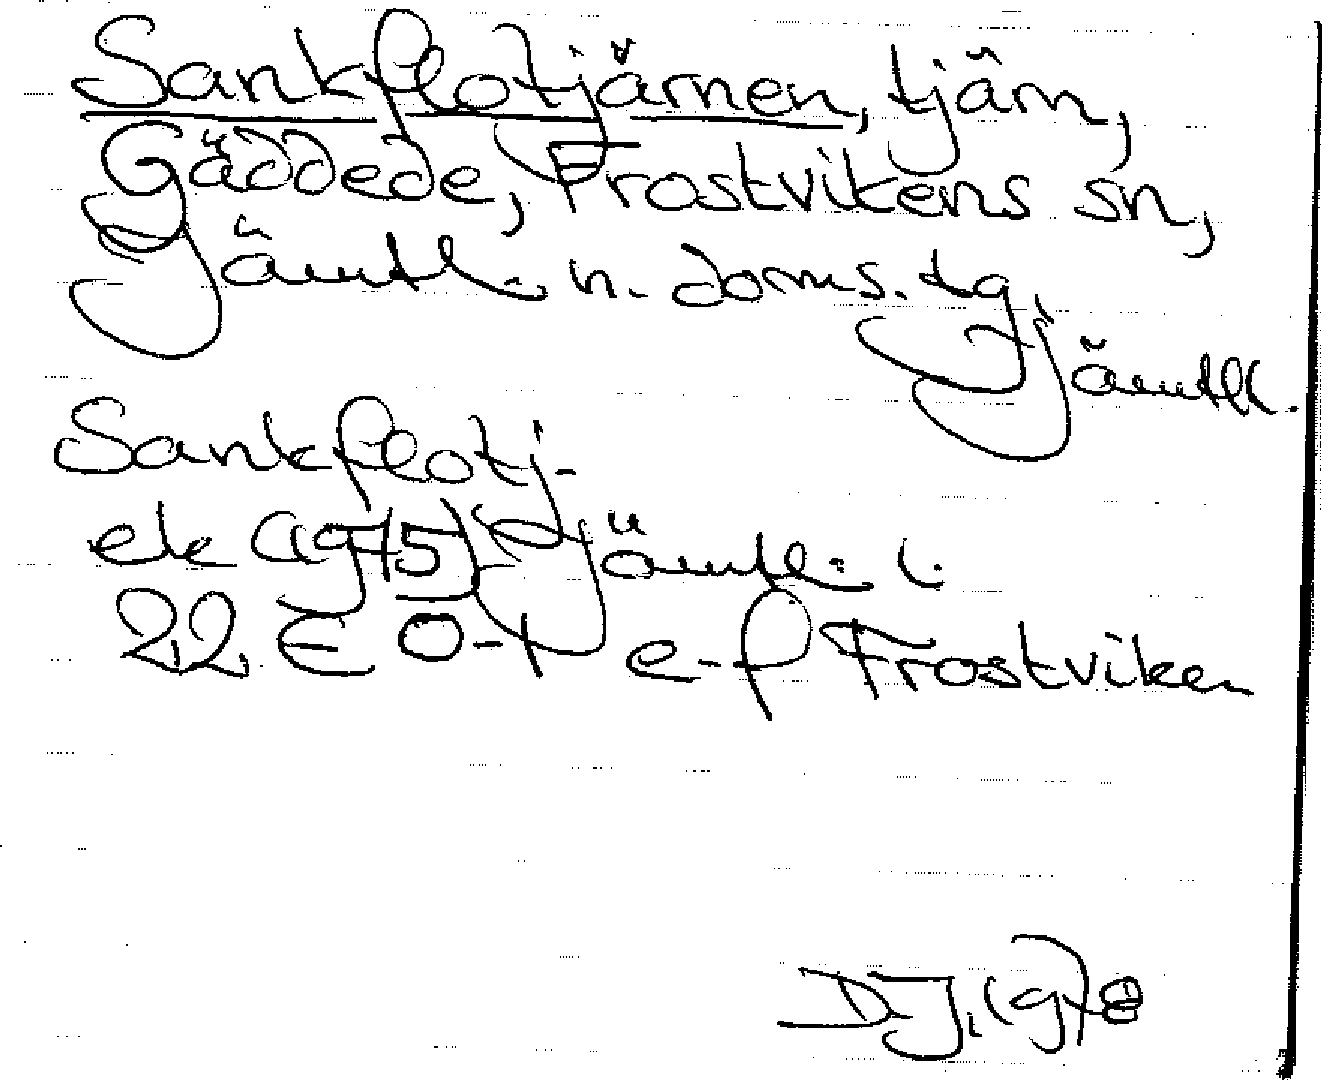 Sankflotjärnen, tjärn,
Gäddede, Frostvikens sn,
Jämtl. n. doms. dg,
Jämtl.
Sankflotj-
ek Jämtl. l.
22 E 0-1 e-f Frostviken